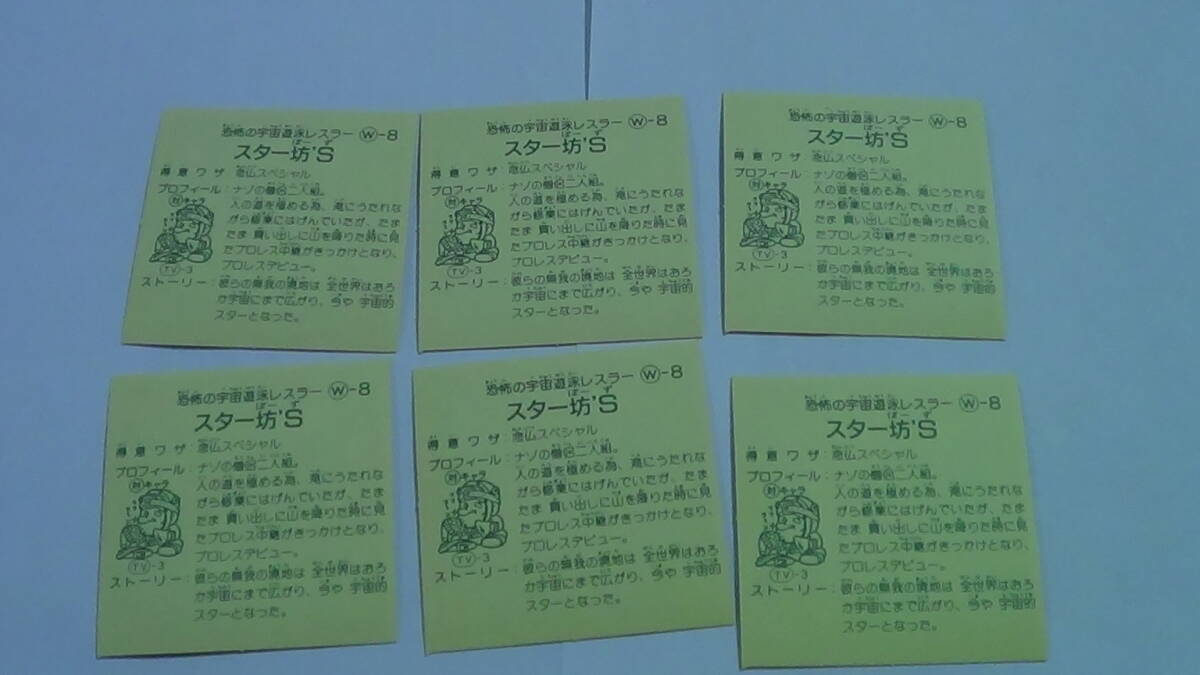 恐怖の宇宙遊泳レスラー Ⓦ-8
スター坊'S
得意ワザ:念仏スペシャル
プロフィール:ナゾの僧侶二人組。
人の道を極める為、滝にうたれな
がら修業にはげんでいたが、たま
たま 買い出しに山を降りた時に見
たプロレス中継がきっかけとなり、
プロレスデビュー。
対キャラ
TV-3
ストーリー:彼らの無我の境地は 全世界はおろ
か宇宙にまで広がり、今や 宇宙的
スターとなった。
恐怖の宇宙遊泳レスラー Ⓦ-8
スター坊'S
得意ワザ:念仏スペシャル
プロフィール:ナゾの僧侶二人組。
人の道を極める為、滝にうたれな
がら修業にはげんでいたが、たま
たま 買い出しに山を降りた時に見
たプロレス中継がきっかけとなり、
プロレスデビュー。
対キャラ
TV-3
ストーリー:彼らの無我の境地は 全世界はおろ
か宇宙にまで広がり、今や 宇宙的
スターとなった。
恐怖の宇宙遊泳レスラー Ⓦ-8
スター坊'S
得意ワザ:念仏スペシャル
プロフィール:ナゾの僧侶二人組。
人の道を極める為、滝にうたれな
がら修業にはげんでいたが、たま
たま 買い出しに山を降りた時に見
たプロレス中継がきっかけとなり、
プロレスデビュー。
対キャラ
TV-3
ストーリー:彼らの無我の境地は 全世界はおろ
か宇宙にまで広がり、今や 宇宙的
スターとなった。
恐怖の宇宙遊泳レスラー Ⓦ-8
スター坊'S
得意ワザ:念仏スペシャル
プロフィール:ナゾの僧侶二人組。
人の道を極める為、滝にうたれな
がら修業にはげんでいたが、たま
たま 買い出しに山を降りた時に見
たプロレス中継がきっかけとなり、
プロレスデビュー。
対キャラ
TV-3
ストーリー:彼らの無我の境地は 全世界はおろ
か宇宙にまで広がり、今や 宇宙的
スターとなった。
恐怖の宇宙遊泳レスラー Ⓦ-8
スター坊'S
得意ワザ:念仏スペシャル
プロフィール:ナゾの僧侶二人組。
人の道を極める為、滝にうたれな
がら修業にはげんでいたが、たま
たま 買い出しに山を降りた時に見
たプロレス中継がきっかけとなり、
プロレスデビュー。
対キャラ
TV-3
ストーリー:彼らの無我の境地は 全世界はおろ
か宇宙にまで広がり、今や 宇宙的
スターとなった。
恐怖の宇宙遊泳レスラー Ⓦ-8
スター坊'S
得意ワザ:念仏スペシャル
プロフィール:ナゾの僧侶二人組。
人の道を極める為、滝にうたれな
がら修業にはげんでいたが、たま
たま 買い出しに山を降りた時に見
たプロレス中継がきっかけとなり、
プロレスデビュー。
対キャラ
TV-3
ストーリー:彼らの無我の境地は 全世界はおろ
か宇宙にまで広がり、今や 宇宙的
スターとなった。